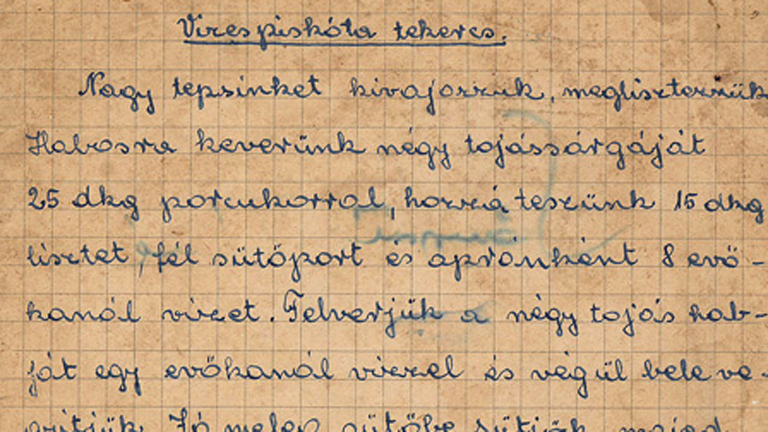 Vizespiskóta tekercs.
Nagy tepsinket kivajozzuk, meglisztezzük
Habosra keverünk négy tojássárgáját
25 dkg porcukorral, hozzá teszünk 15 dkg
lisztet, fél sütőport és apránként 8 evő-
kanál vizet. Felverjük a négy tojás hab-
ját egy evőkanál vízzel és végül bele ve-
gyítjük. Jó meleg sütőbe sütjük, majd